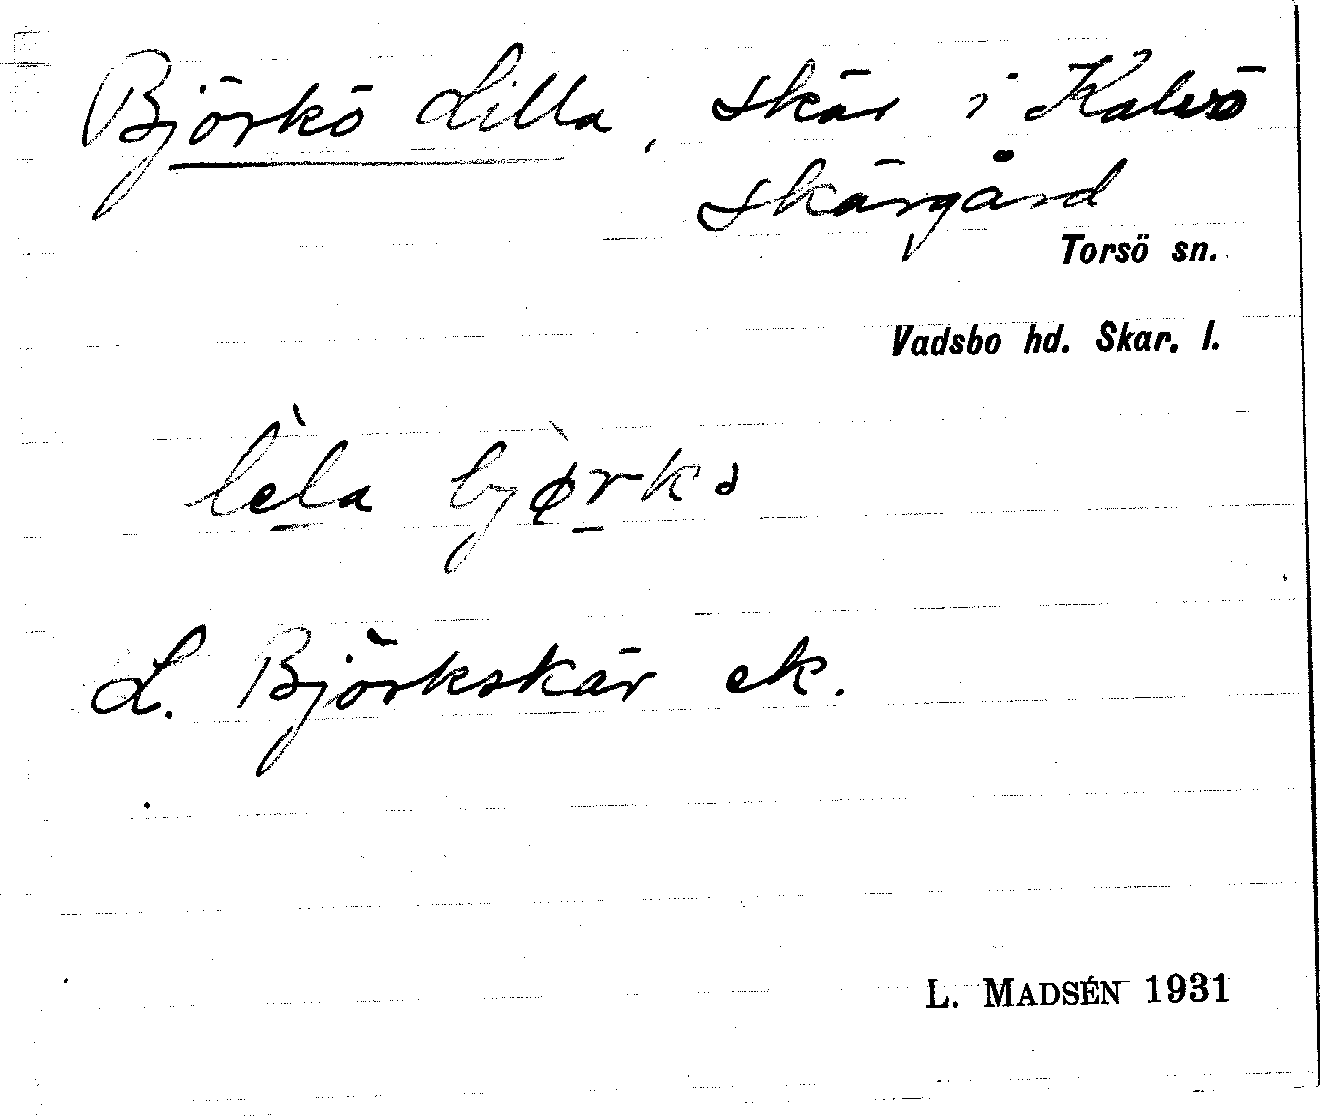 Björkö Lilla, skär i Kalvö
skärgård
Torsö sn.
Vadsbo hd. Skar. l.
lèla bjø̀rkə
L. Björkskär ek.
L. MADSÉN 1931